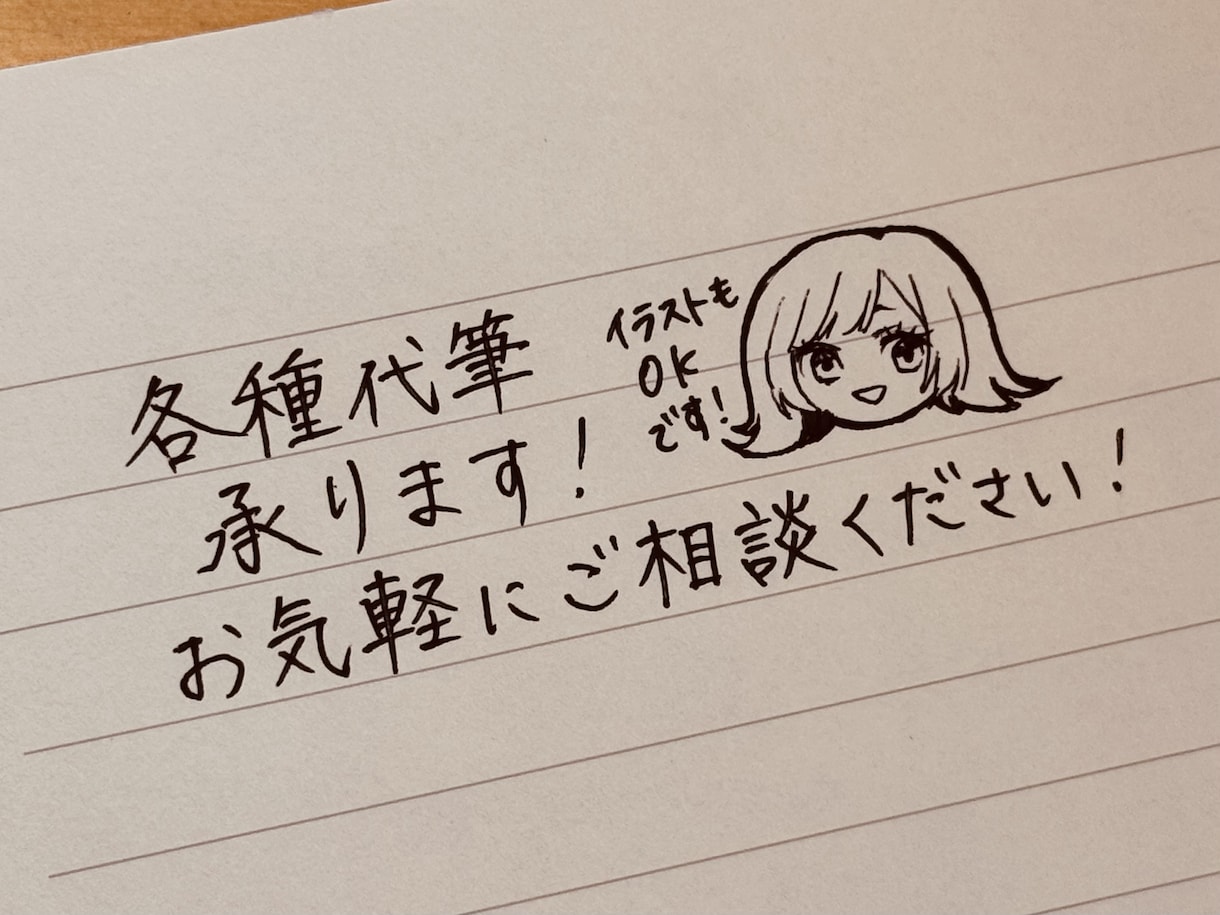 各種代筆
承ります!
イラストも
OK
です!
お気軽にご相談ください!